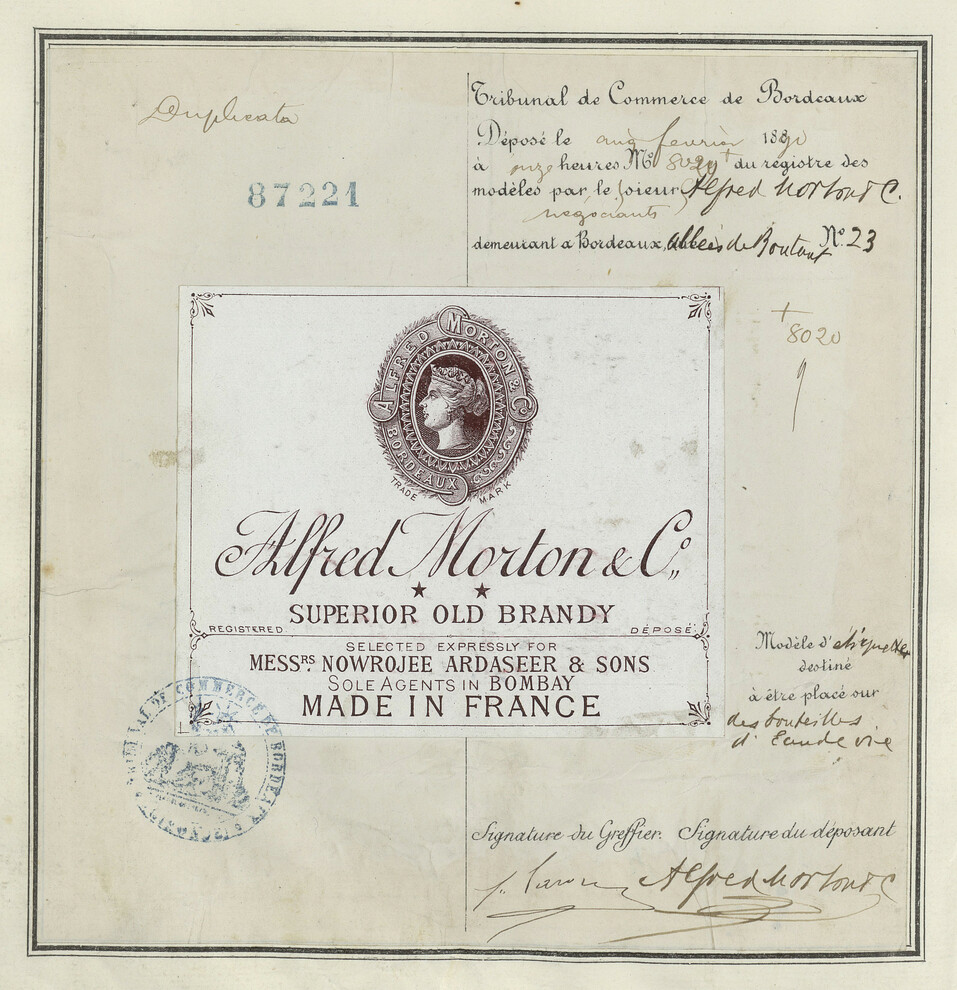 Duplicata
87221
Tribunal de Commerce de Bordeaux
Déposé le février 1890
à onze heures No 8020 + du registre des
modèles par le sieur Alfred Morton & C.
négociants
demeurant a Bordeaux, allées de Boutaut No. 23
+
8020
ALFRED MORTON & Co
BORDEAUX
TRADE MARK
Alfred Morton & Co.,
★ ★
SUPERIOR OLD BRANDY
REGISTERED DÉPOSÉ
SELECTED EXPRESSLY FOR
MESSRS NOWROJEE ARDASEER & SONS
SOLE AGENTS IN BOMBAY
MADE IN FRANCE
Modèle d'étiquettes
destiné
à être placé sur
des bouteilles
d'Eau de vie
TRIBUNAL DE COMMERCE DE BORDEAUX
Signature du Greffier. Signature du déposant
Alfred Morton & C